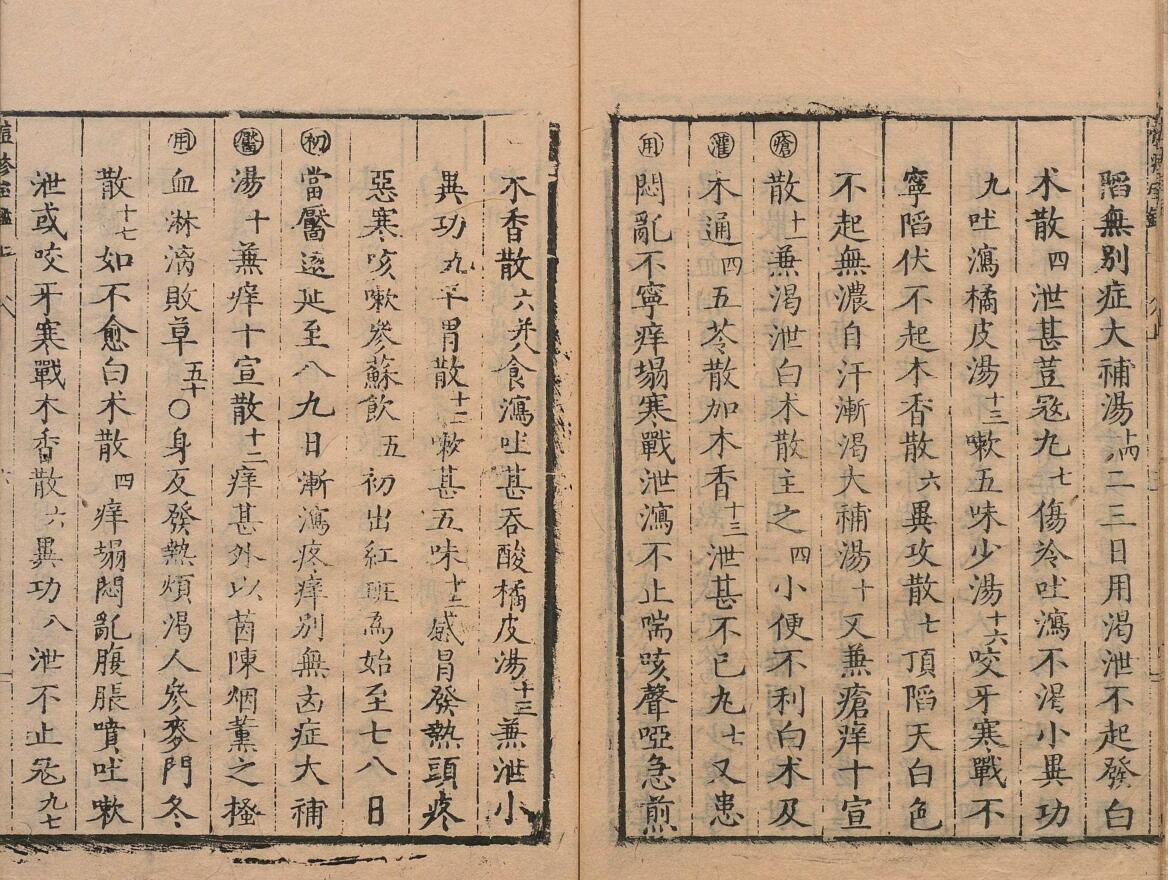 陷無別症大補湯二三日用渴泄不起發白
术散四泄甚荳𦭘九七傷冷吐瀉不渴小異功
九吐瀉橘皮湯十三嗽五味少湯十六咬牙寒戰不
寧陷伏不起木香散六異攻散七頂陷天白色
不起無濃自汗漸渴大補湯十又兼瘡痒十宣
瘡散十一兼渴泄白木散主之四小便不利白术及
灌木通四五苓散加木香十三泄甚不已九七又患
用悶亂不寧痒塌寒戰泄瀉不止喘咳聲啞急煎
木香散六并食瀉吐甚吞酸橘皮湯十三兼泄小
異功九平胃散十二嗽甚五味十二感冒發熱頭疼
惡寒咳嗽參蘇飲五初出紅班為始至七八日
初當靨遂延至八九日漸瀉疼痒別無凶症大補
靨湯十兼痒十宣散十二痒甚外以茵陳烟薰之搔
用血淋漓敗草五十〇身反發熱煩渴人參麥門冬
散十七如不愈白术散四痒塌悶亂腹脹噴吐嗽
泄或咬牙寒戰木香散六異功八泄不止𦭘九七